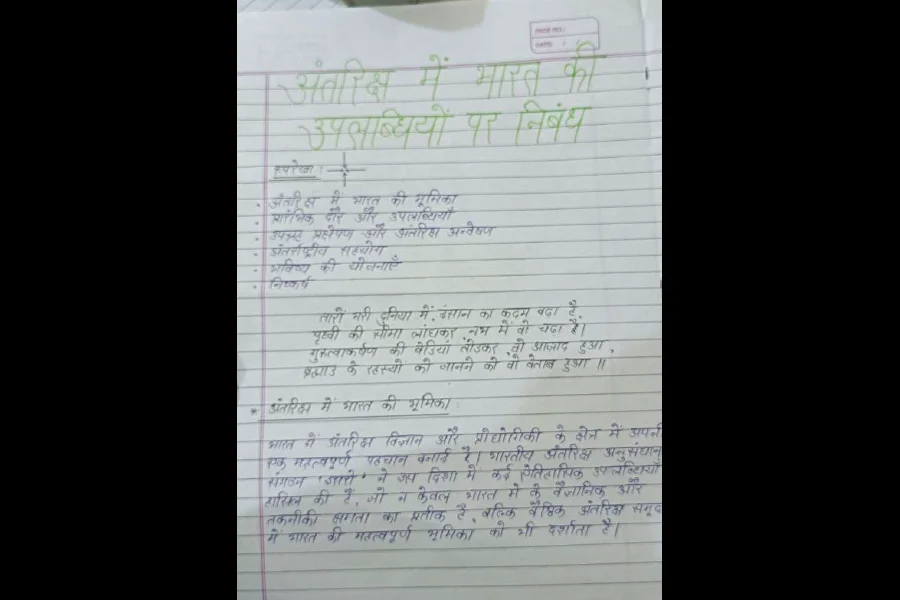 PAGE NO.:
DATE: / /
अंतरिक्ष में भारत की
उपलब्धियों पर निबंध
रूपरेखा :-
• अंतरिक्ष में भारत की भूमिका
• प्रारंभिक दौर और उपलब्धियाँ
• उपग्रह प्रक्षेपण और अंतरिक्ष अन्वेषण
• अंतर्राष्ट्रीय सहयोग
• भविष्य की योजनाएँ
• निष्कर्ष
तारों भरी दुनिया में, इंसान का कदम बढ़ा है,
पृथ्वी की सीमा लांघकर, नभ में वो चढ़ा है।
गुरुत्वाकर्षण की बेड़ियां तोड़कर, वो आज़ाद हुआ,
ब्रह्मांड के रहस्यों को जानने को वो बेताब हुआ ॥
* अंतरिक्ष में भारत की भूमिका :
भारत ने अंतरिक्ष विज्ञान और प्रौद्योगिकी के क्षेत्र में अपनी
एक महत्वपूर्ण पहचान बनाई है। भारतीय अंतरिक्ष अनुसंधान
संगठन ने इस दिशा में कई ऐतिहासिक उपलब्धियाँ
हासिल की हैं, जो न केवल भारत के वैज्ञानिक और
तकनीकी क्षमता का प्रतीक है, बल्कि वैश्विक अंतरिक्ष समूद
में भारत की महत्वपूर्ण भूमिका को भी दर्शाता है।